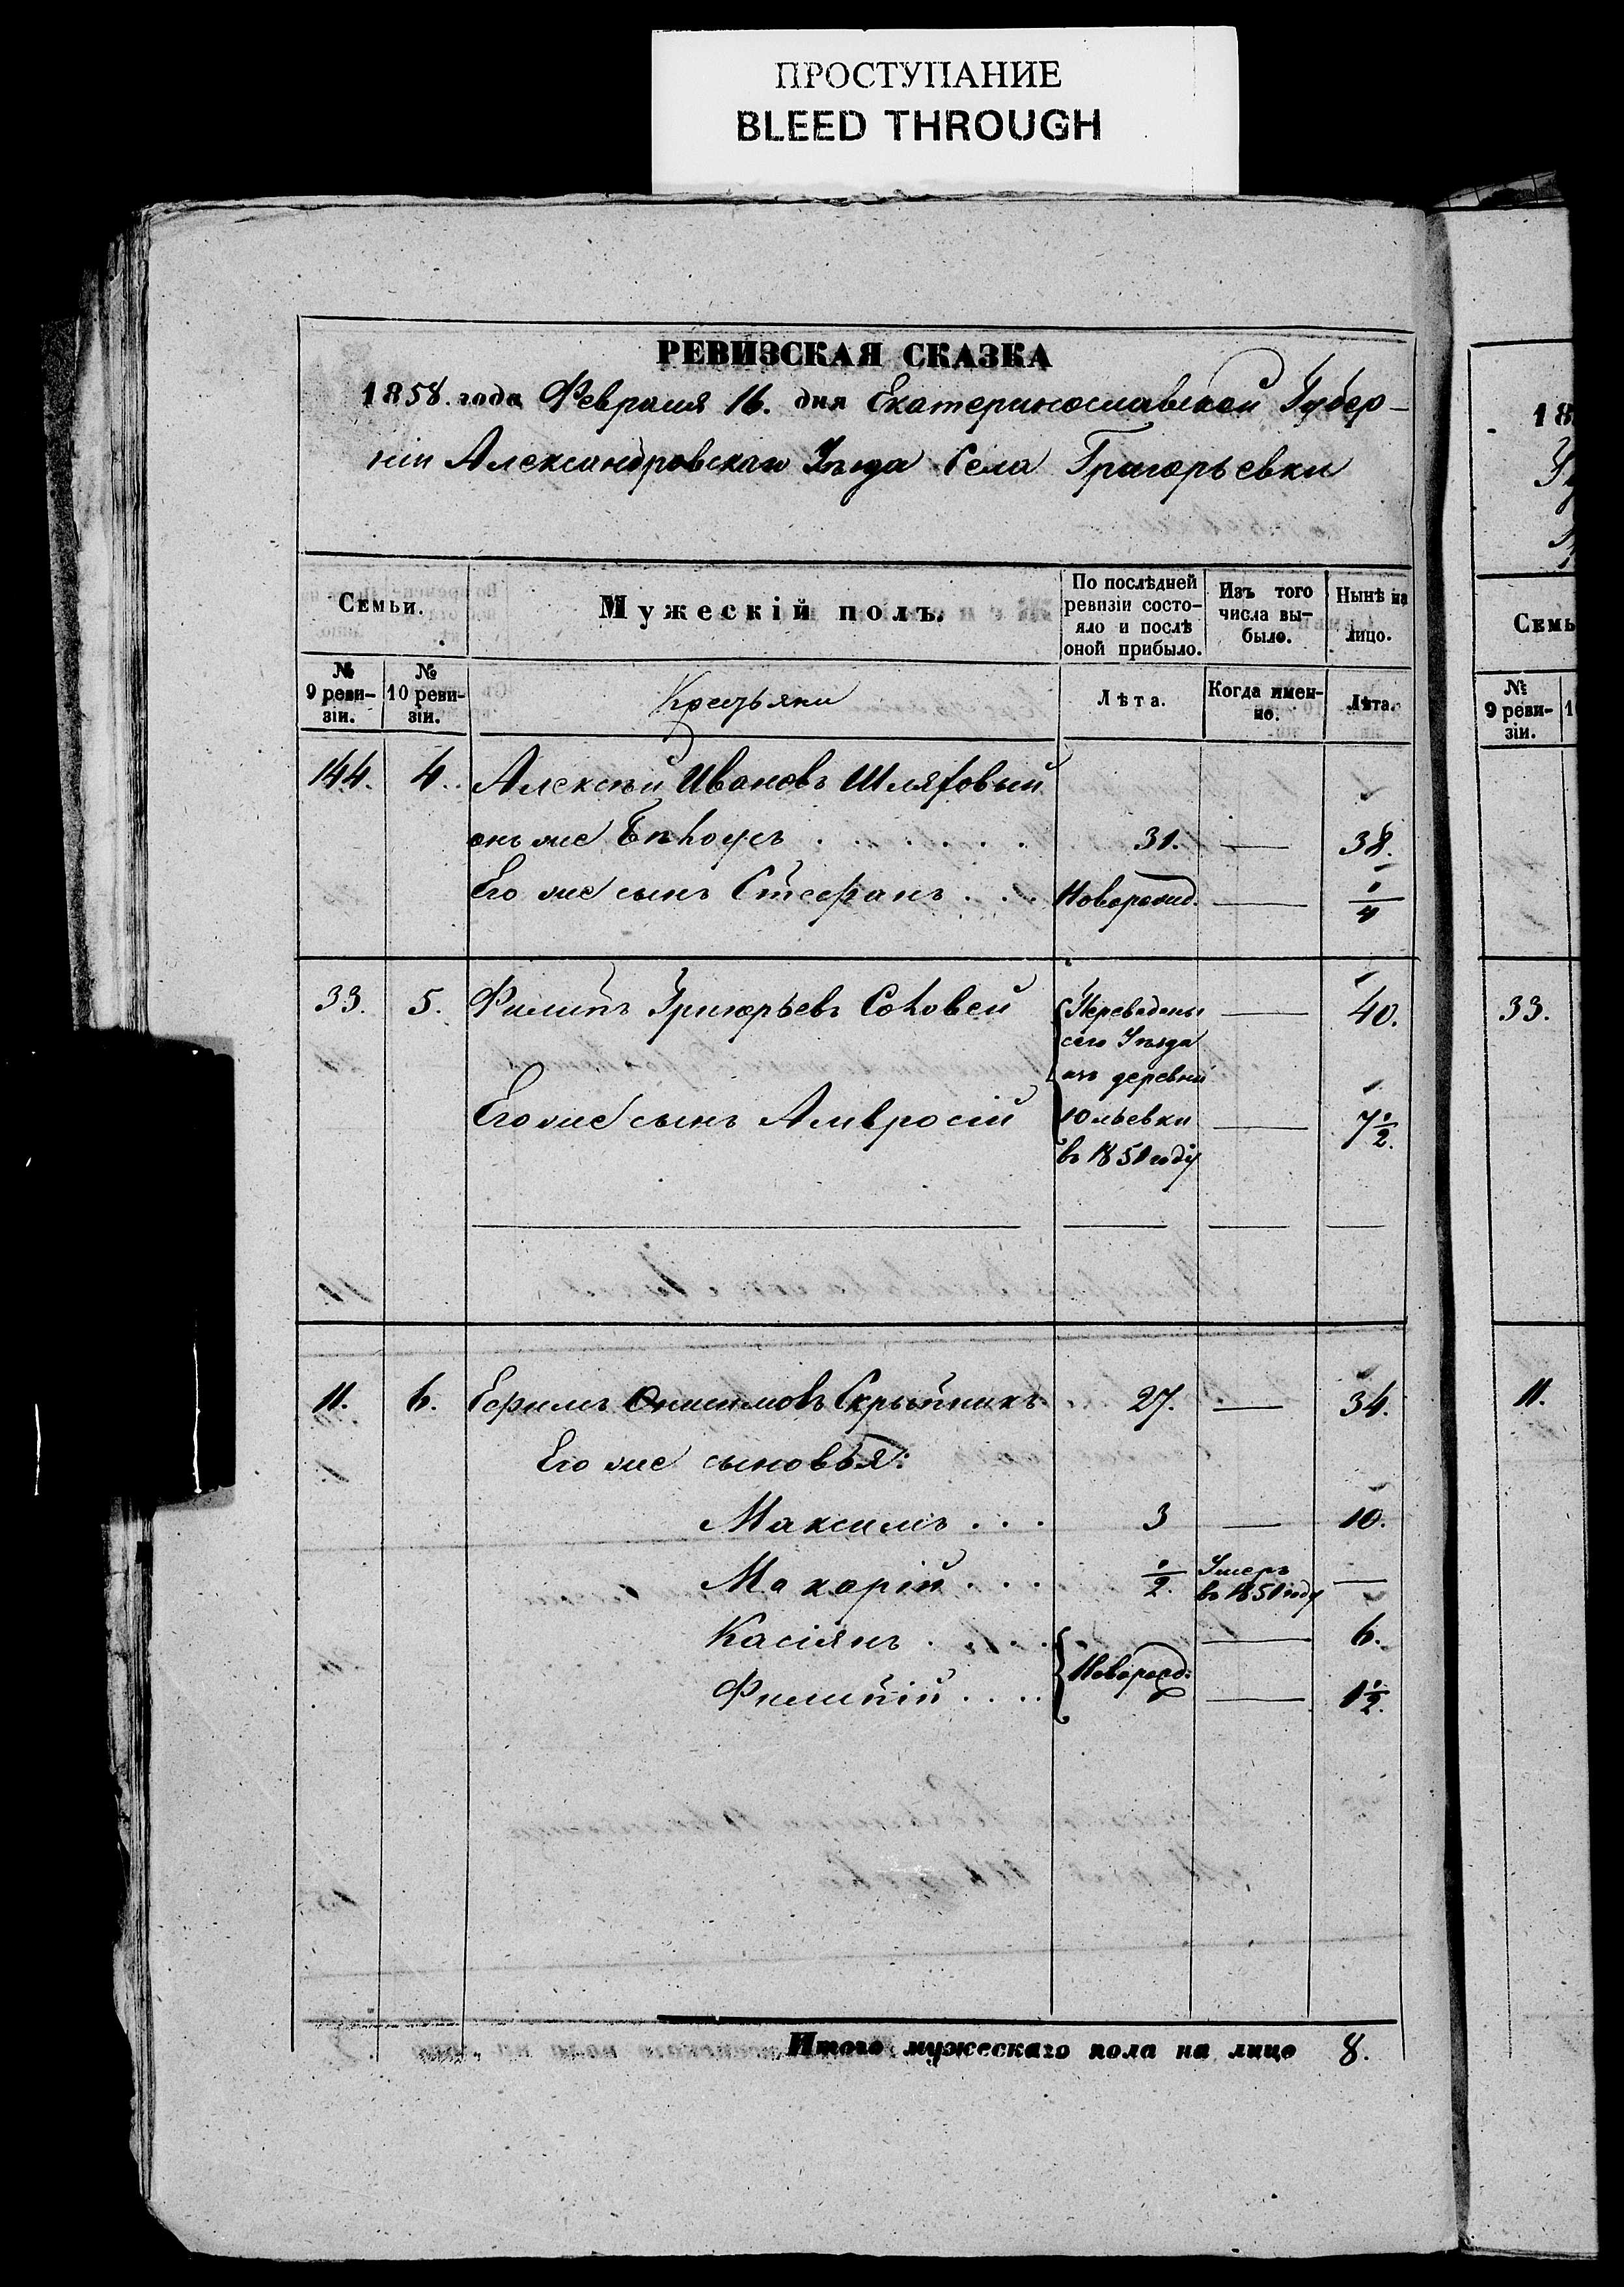 ПРОСТУПАНИЕ
BLEED THROUGH
РЕВИЗСКАЯ СКАЗКА
1858. года Февраля 16. дня Екатеринославской Губер-
ніи Александровскаго Уѣзда Села Григорьевки
Семьи.
Мужескій полъ.
По послѣдней ревизіи состо-яло и послѣ оной прибыло.
Изъ того числа вы-было.
Нынѣ на лицо.
№ 9 реви-зіи.
№ 10 реви-зіи.
Крестьяне
Лѣта.
Когда имен-но.
Лѣта.
144. 4. Алексѣй Ивановъ Шляховый
онъ же Бѣлоусъ . . . . . . 31. — 38.
Его же сынъ Стефанъ . . . Новорожд. — 1/4
33. 5. Филипъ Григорьевъ Соловей — 40.
Переведены
сего Уѣзда
изъ деревни
Юльевки
въ 1851 году
Его же сынъ Амвросій — 7 1/2.
11. 6. Ефимъ Онисимовъ Скрыпникъ 27. — 34.
Его же сыновья:
Максимъ . . . 3 — 10.
Макарій . . . 1/2. Умеръ въ 1851 году —
Касіянъ . . . . — 6.
Новорожд:
Филипій . . . . — 1 1/2.
Итого мужескаго пола на лице 8.
18
Семь
№ 9 реви-зіи.
33.
11.